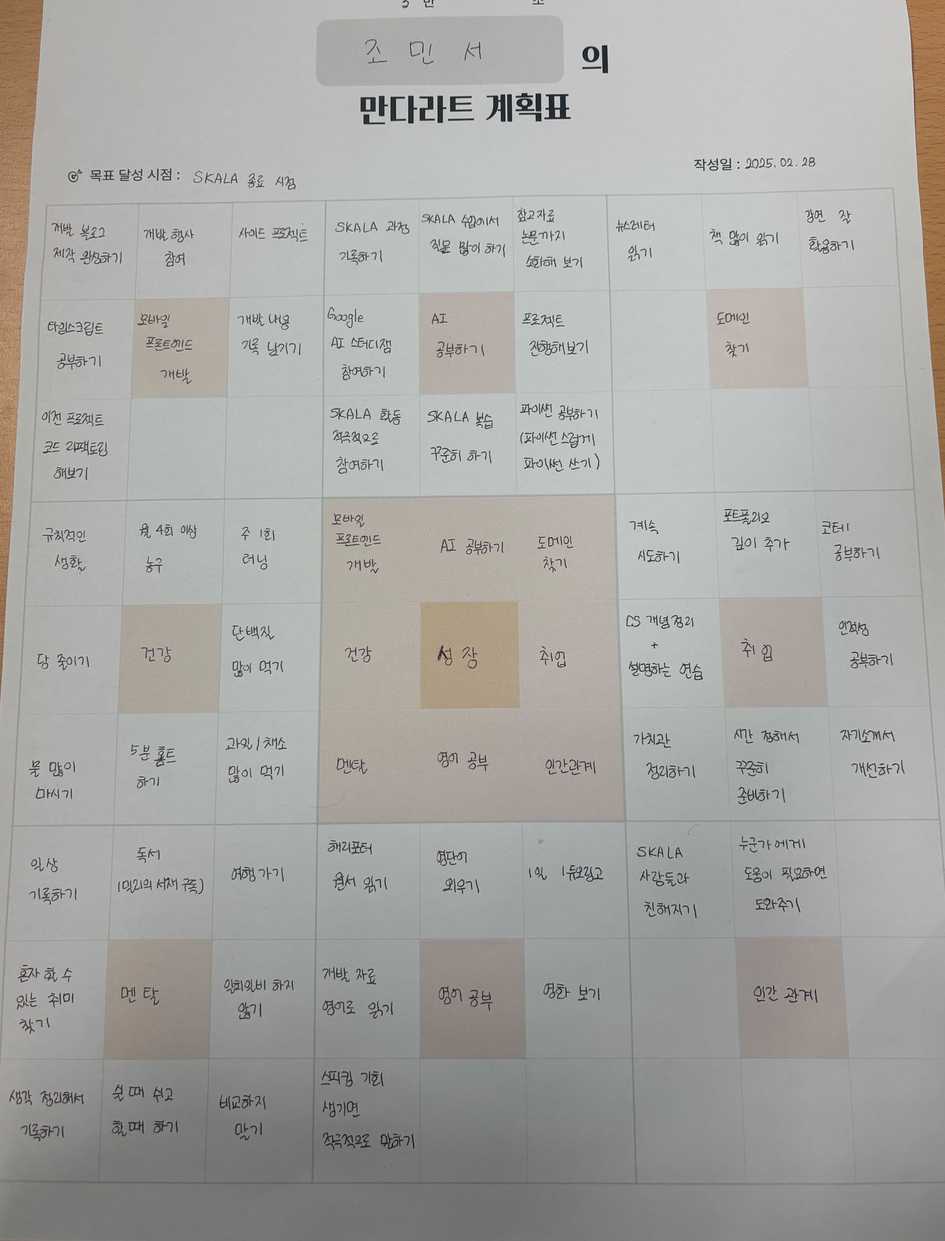 3 반 조
조 민 서 의
만다라트 계획표
목표 달성 시점 : SKALA 종료 시점
작성일 : 2025. 02. 28
개발 블로그
제작 완성하기
개발 행사
참여
사이드 프로젝트
SKALA 과정
기록하기
SKALA 수업에서
질문 많이 하기
참고자료
논문까지
소화해 보기
뉴스레터
읽기
책 많이 읽기
강연 잘
활용하기
타입스크립트
공부하기
모바일
프론트엔드
개발
개발 내용
기록 남기기
Google
AI 스터디잼
참여하기
AI
공부하기
프로젝트
진행해보기
도메인
찾기
이전 프로젝트
코드 리팩토링
해보기
SKALA 활동
적극적으로
참여하기
SKALA 복습
꾸준히 하기
파이썬 공부하기
(파이썬 스럽게
파이썬 쓰기)
규칙적인
생활
월 4회 이상
농구
주 1회
러닝
모바일
프론트엔드
개발
AI 공부하기
도메인
찾기
계속
시도하기
포트폴리오
깊이 추가
코테
공부하기
당 줄이기
건강
단백질
많이 먹기
건강
성장
취업
CS 개념정리
+
설명하는 연습
취업
인적성
공부하기
물 많이
마시기
5분 홈트
하기
과일/채소
많이 먹기
멘탈
영어 공부
인간관계
가치관
정리하기
시간 정해서
꾸준히
준비하기
자기소개서
개선하기
일상
기록하기
독서
(밀리의 서재 구독)
여행 가기
해리포터
원서 읽기
영단어
외우기
1일 1듀오링고
SKALA
사람들과
친해지기
누군가에게
도움이 필요하면
도와주기
혼자 할 수
있는 취미
찾기
멘탈
일희일비 하지
않기
개발 자료
영어로 읽기
영어 공부
영화 보기
인간 관계
생각 정리해서
기록하기
쉴 때 쉬고
할 때 하기
비교하지
말기
스피킹 기회
생기면
적극적으로 말하기